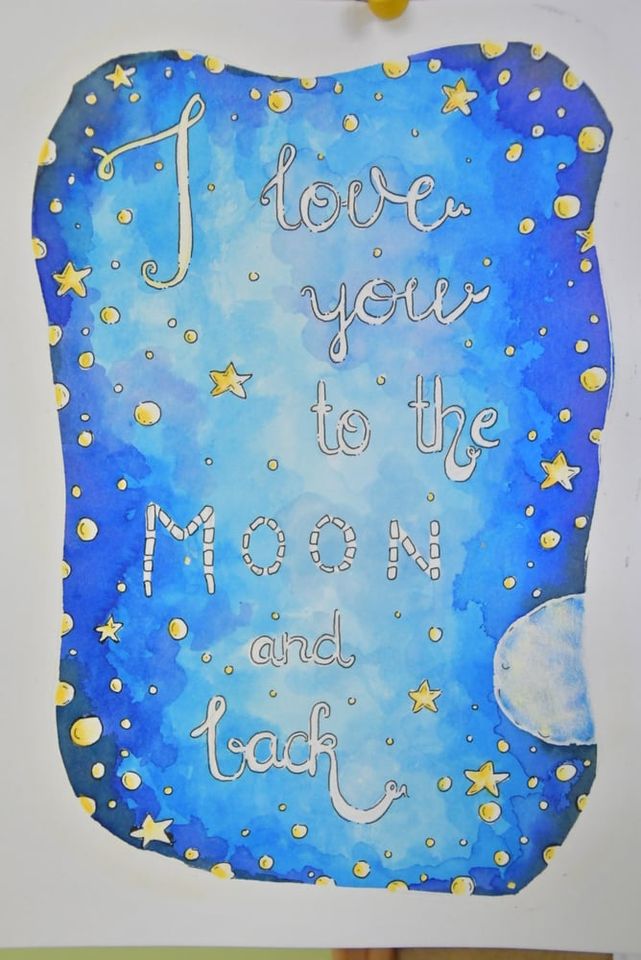 I love
you
to the
MOON
and
back